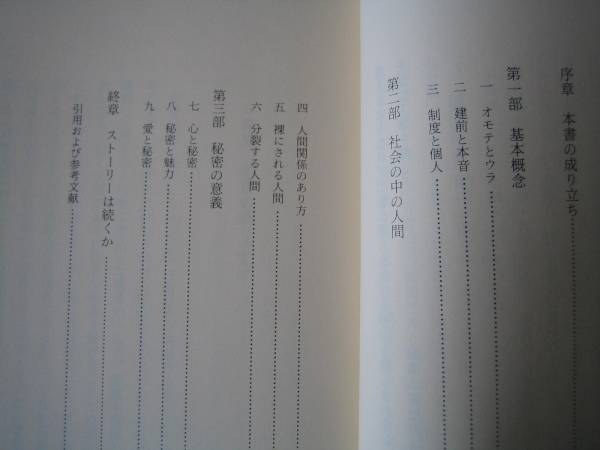 序章　本書の成り立ち
第一部　基本概念
一　オモテとウラ
二　建前と本音
三　制度と個人
第二部　社会の中の人間
四　人間関係のあり方
五　裸にされる人間
六　分裂する人間
第三部　秘密の意義
七　心と秘密
八　秘密と魅力
九　愛と秘密
終章　ストーリーは続くか
引用および参考文献